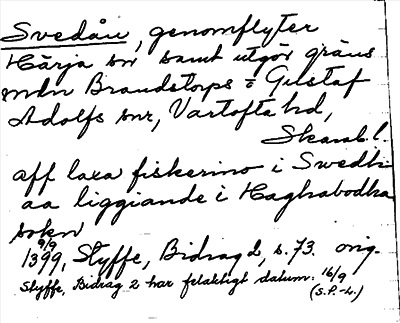 Svedån, genomflyter
Härja sn samt utgör gräns
mln Brandstorps o Gustaf
Adolfs snr, Vartofta hd,
Skarab.l.
aff laxa fiskerino i Swedh
aa liggiande i Haghabodha
sokn
9/9
1399, Styffe, Bidrag 2, s. 73. orig.
Styffe, Bidrag 2 har felaktigt datum: 16/9
(S.P.-L.)